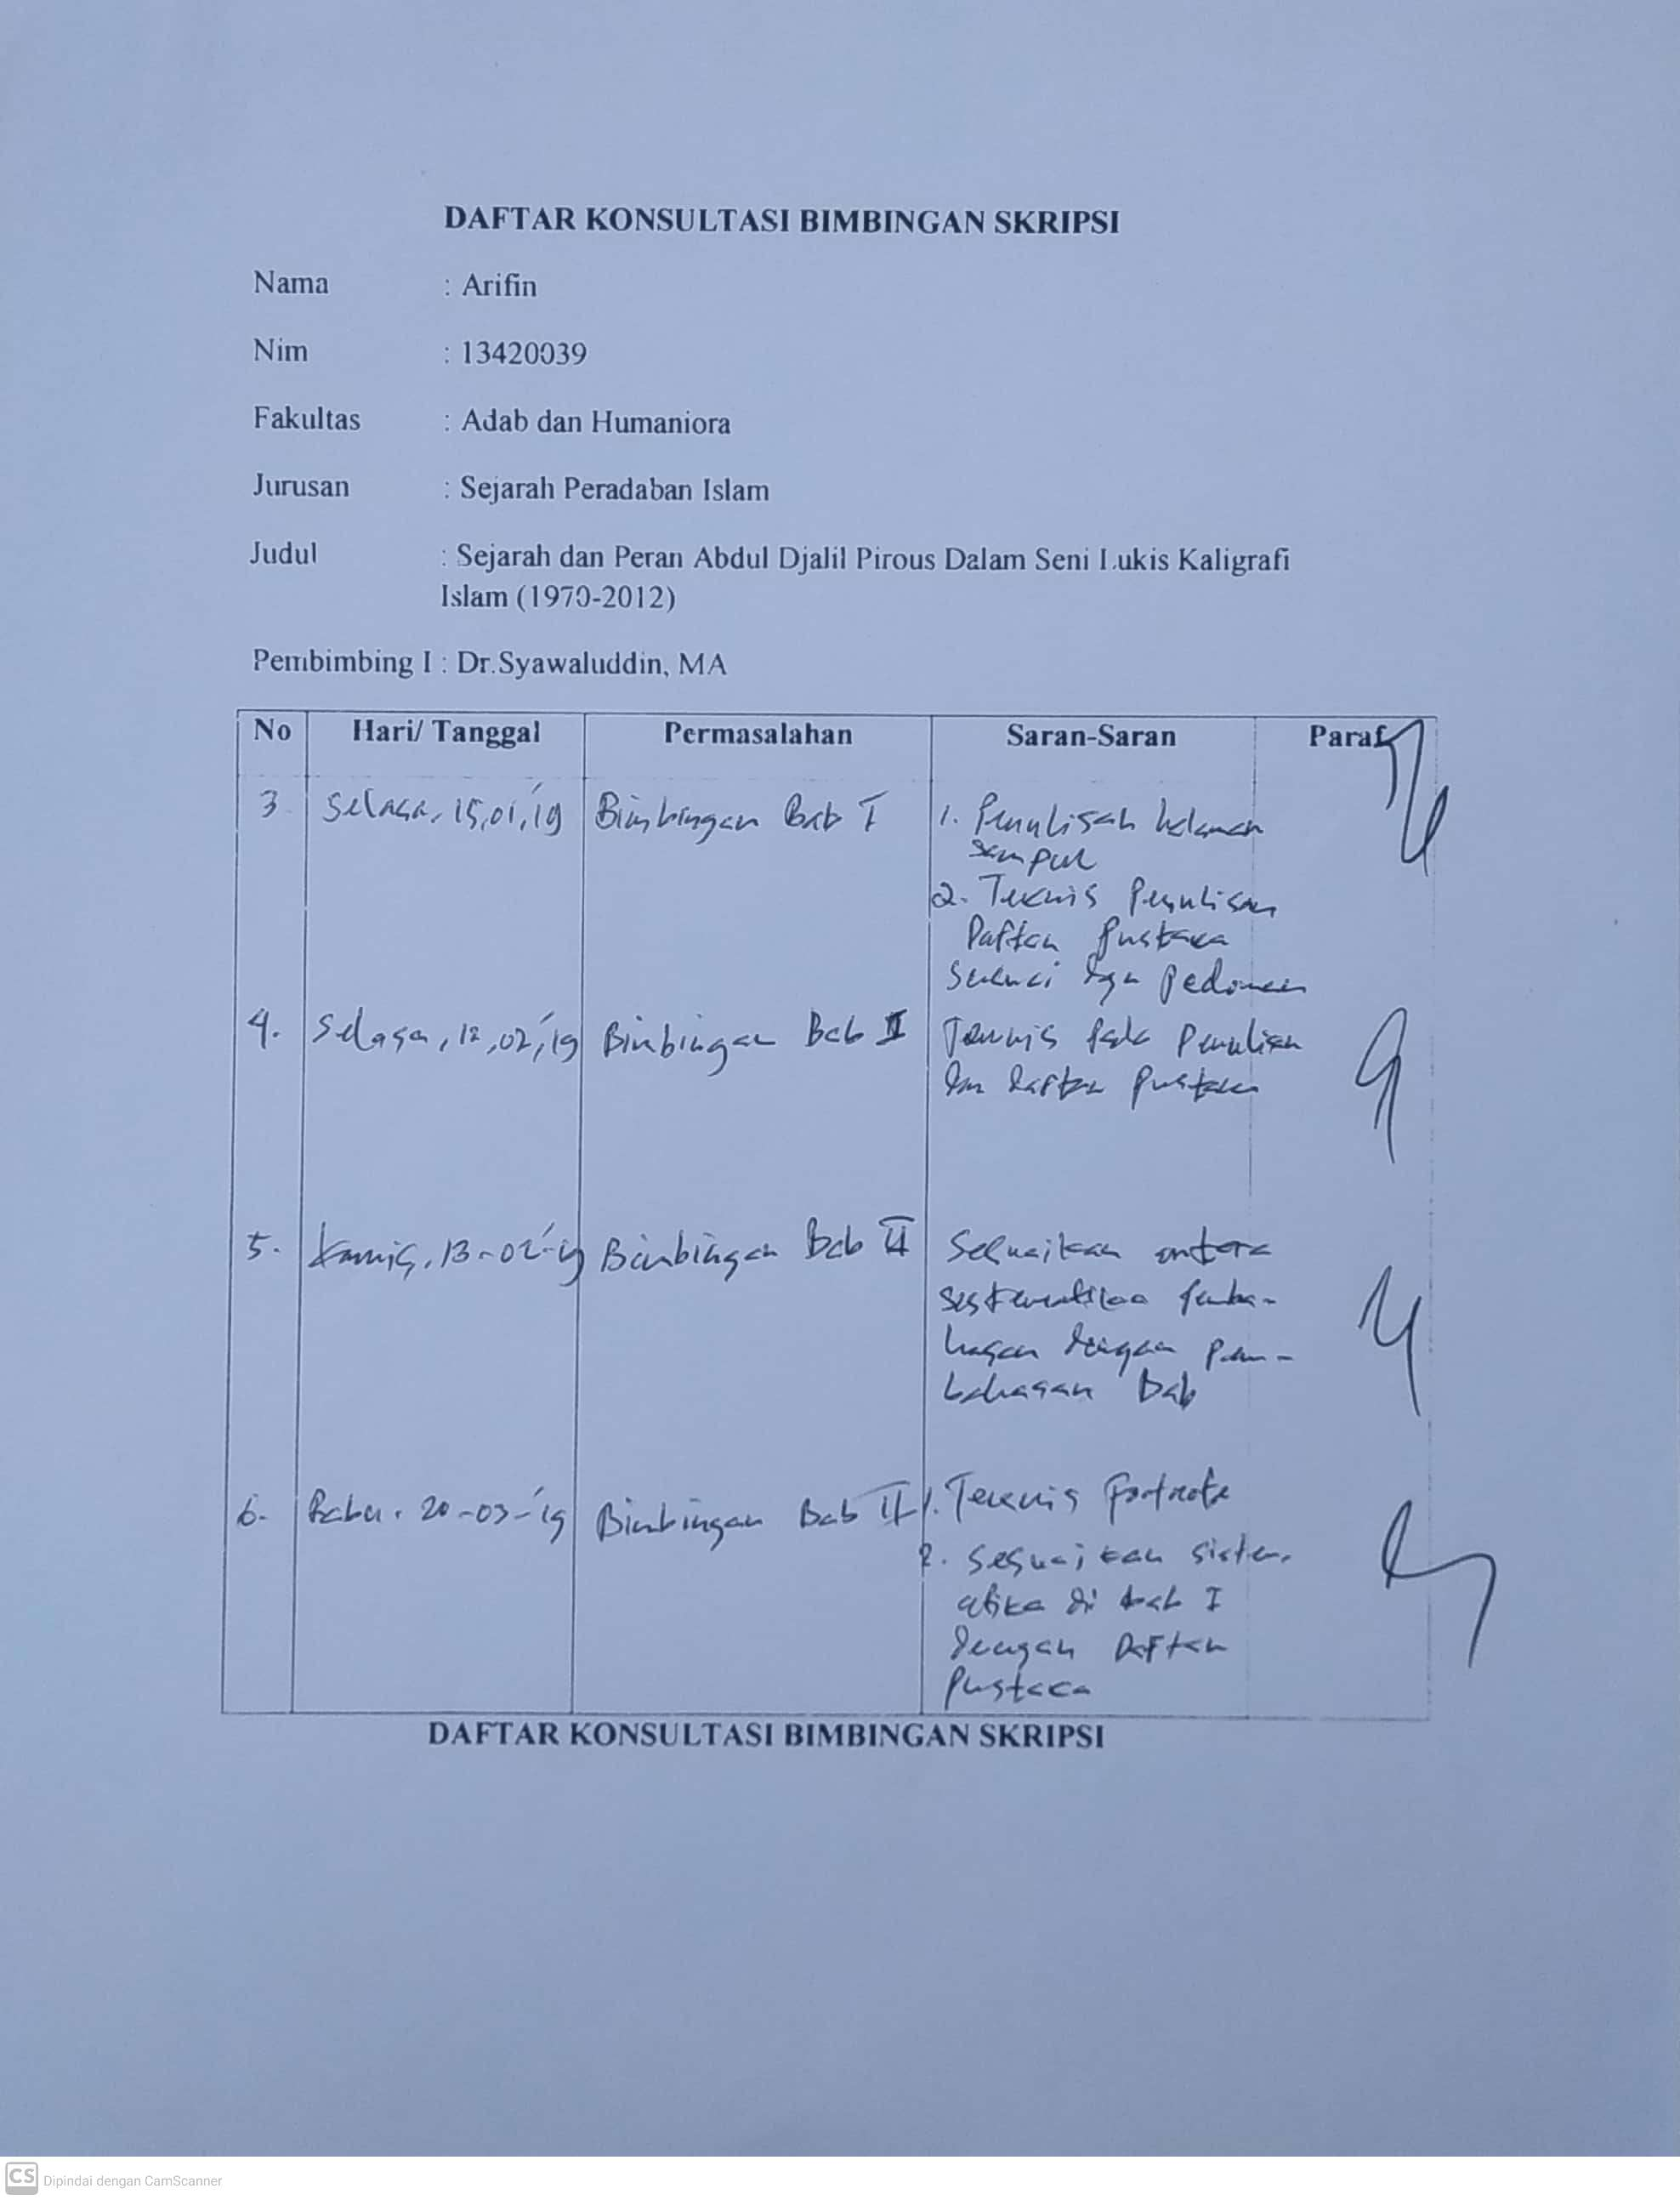 DAFTAR KONSULTASI BIMBINGAN SKRIPSI
Nama : Arifin
Nim : 13420039
Fakultas : Adab dan Humaniora
Jurusan : Sejarah Peradaban Islam
Judul : Sejarah dan Peran Abdul Djalil Pirous Dalam Seni Lukis Kaligrafi
Islam (1970-2012)
Pembimbing I : Dr.Syawaluddin, MA
No Hari/ Tanggal Permasalahan Saran-Saran Paraf
3. Selasa, 15,01,'19 Bimbingan Bab I 1. Penulisan halaman
sampul
2. Teknis Penulisan
Daftar Pustaka
sesuai dgn Pedoman
4. Selasa, 12,02,'19 Bimbingan Bab II Teknis pada Penulisan
dan daftar Pustaka
5. Kamis, 13-02-'19 Bimbingan Bab II Sesuaikan antara
sistematika pemba-
hasan dengan pem-
bahasan Bab
6. Rabu. 20-03-'19 Bimbingan Bab II 1. Teknis footnote
2. sesuaikan sistem-
atika di bab I
dengan Daftar
Pustaka
DAFTAR KONSULTASI BIMBINGAN SKRIPSI
CS Dipindai dengan CamScanner